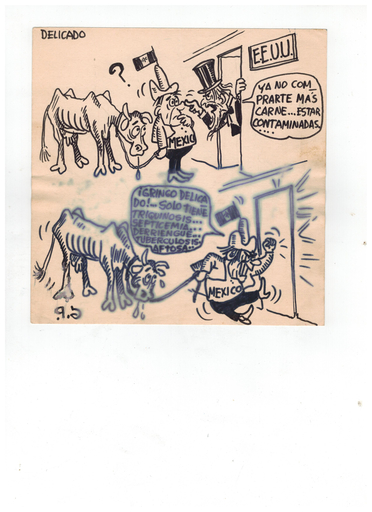 DELICADO
?
E.E.U.U.
YA NO COM
PRARTE MÁS
CARNE... ESTAR
CONTAMINADAS
....
MEXICO
¡GRINGO DELICA
DO!... SOLO TIENE
TRIQUINOSIS...
SEPTICEMIA...
DERRIENGUE...
TUBERCULOSIS
AFTOSA...
MEXICO